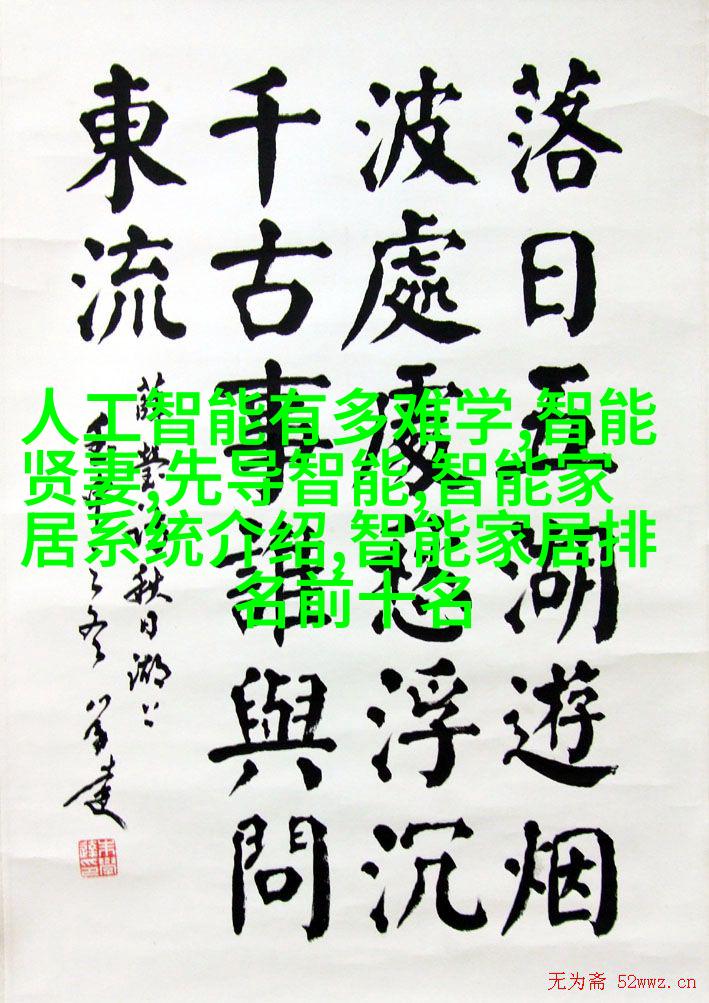 落日五湖遊烟
波處處愁浮沉
千古事誰與問
東流
薛瑩 秋日湖上
人工智能有多难学,智能
贤妻,先导智能,智能家
居系统介绍,智能家居排
名前十名
无为斋 52wwz.cn